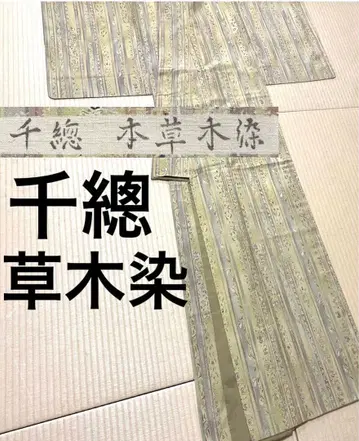 千總 本草木染
千總
草木染